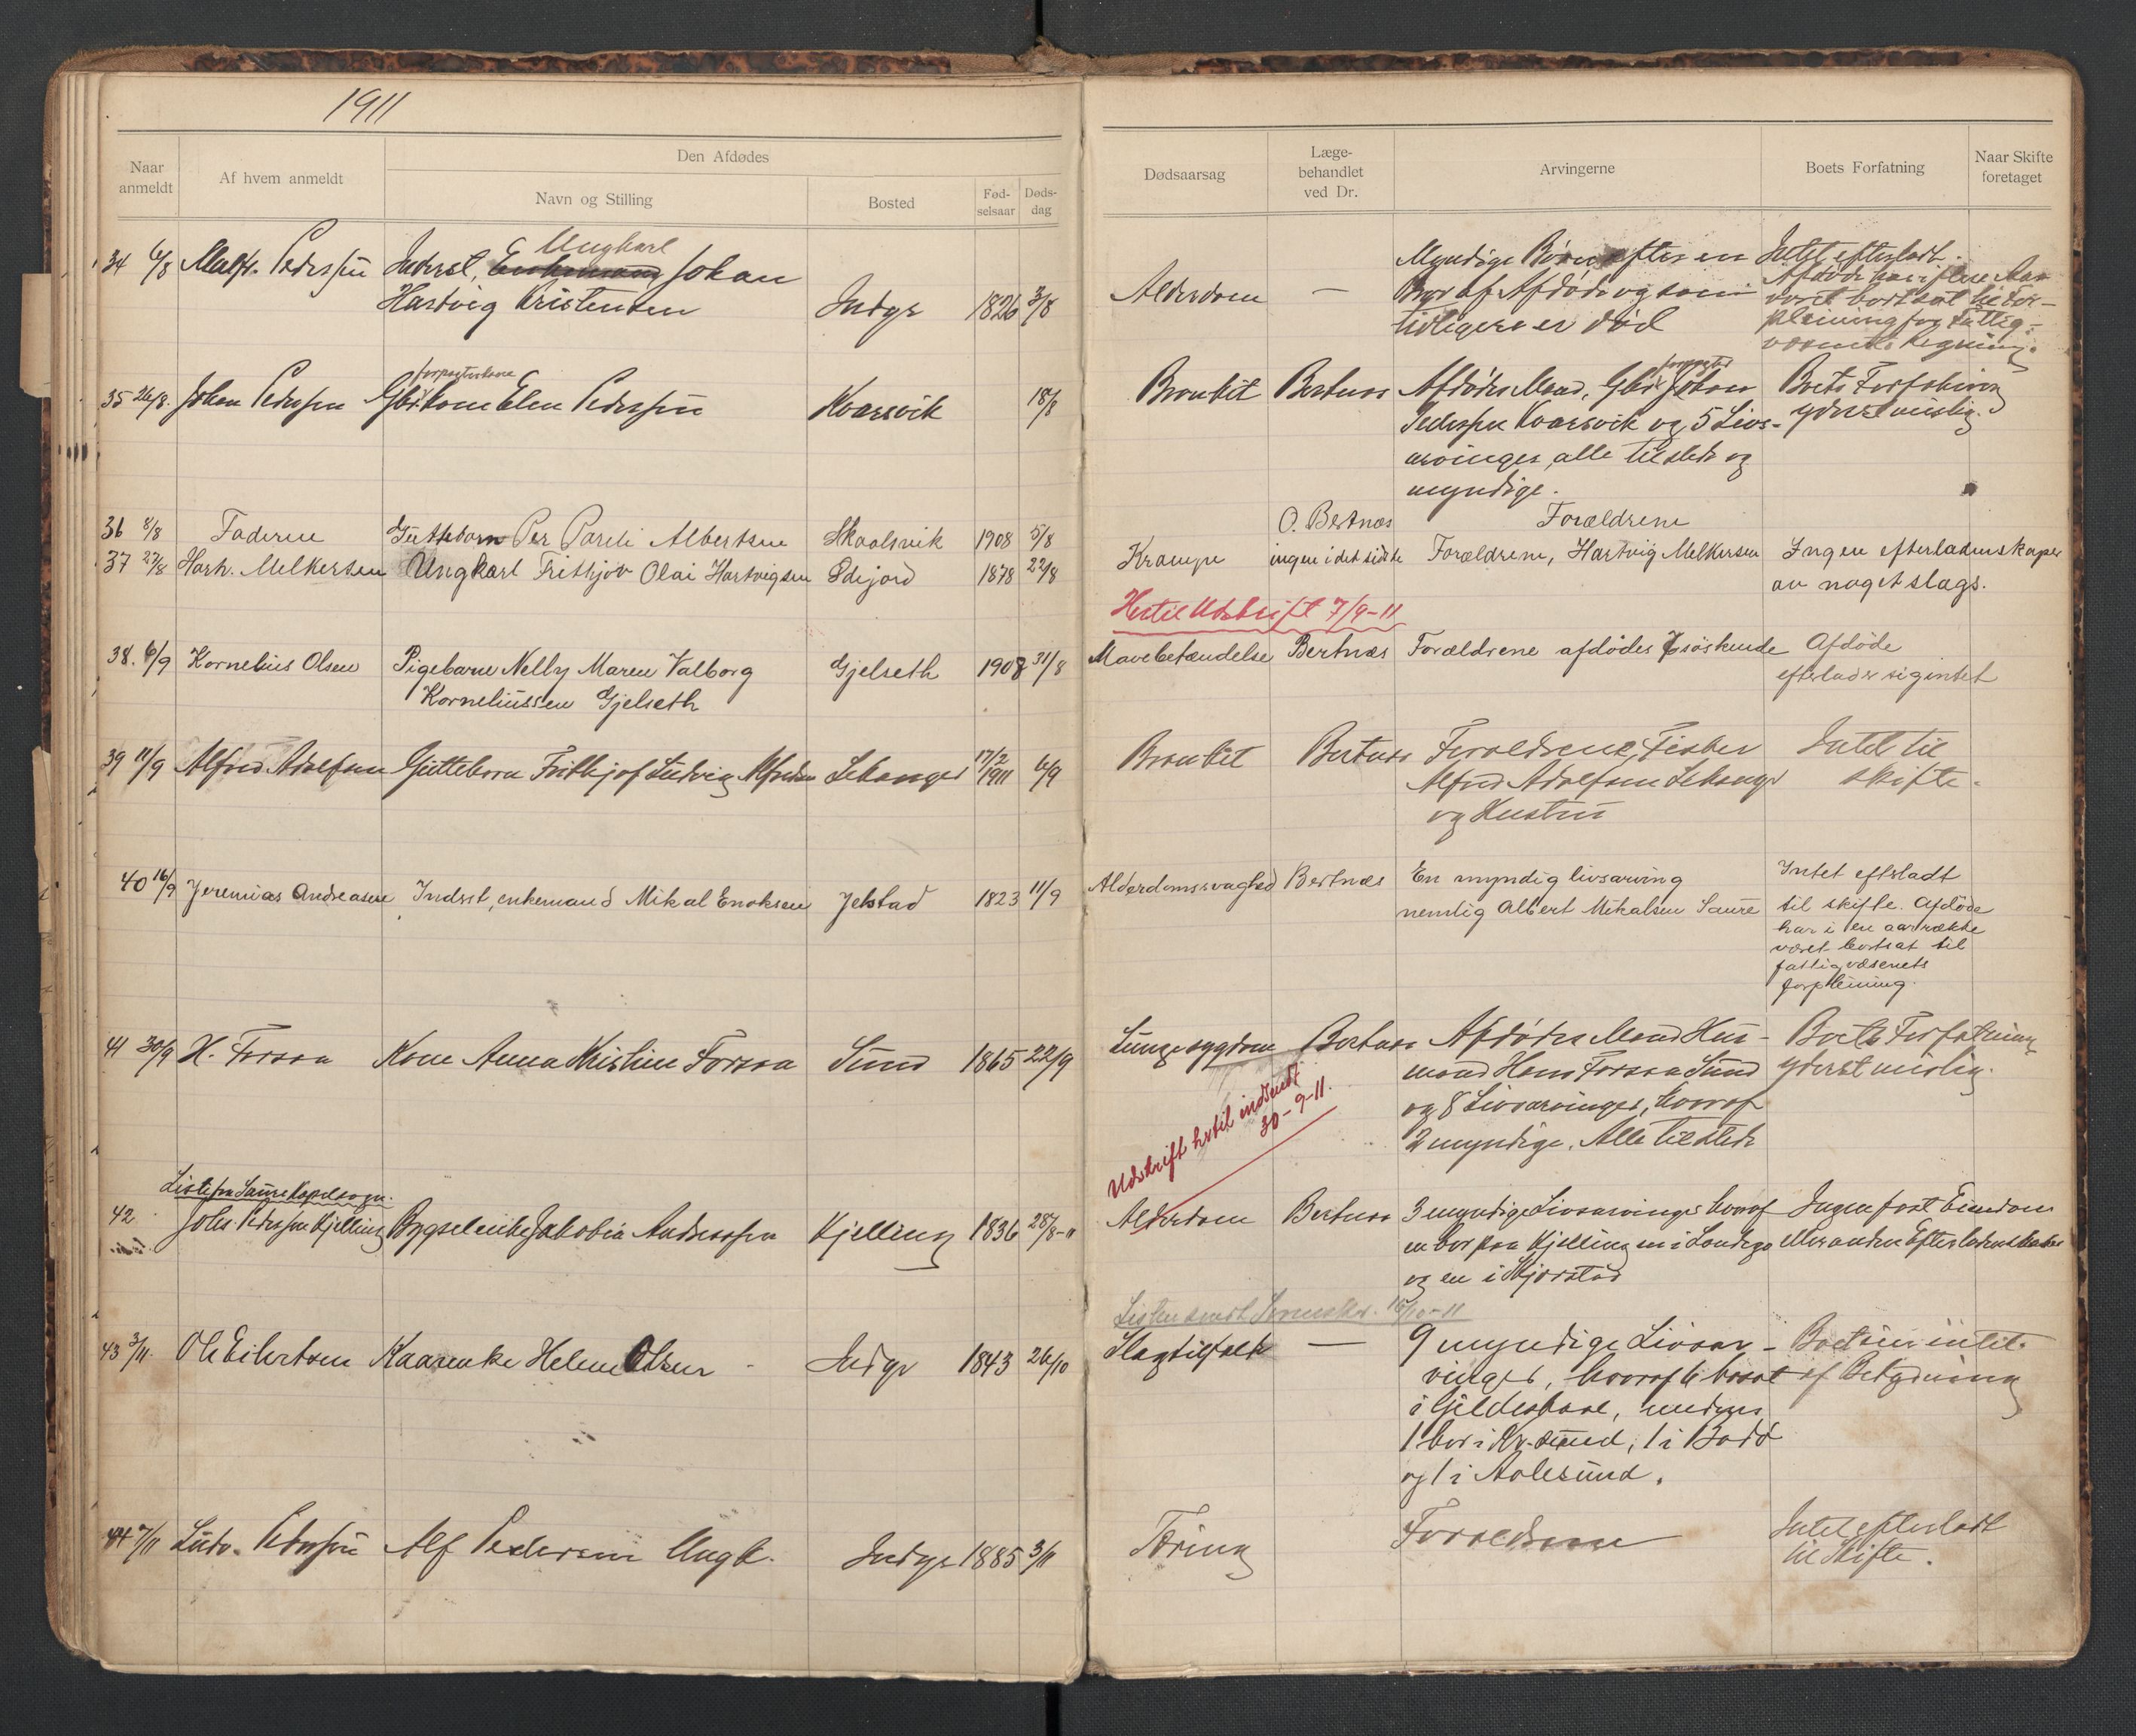 1911
Naar anmeldt
Af hvem anmeldt
Den Afdødes
Navn og Stilling
Bosted
Fød-selsaar
Døds-dag
Dødsaarsag
Læge-behandlet ved Dr.
Arvingerne
Boets Forfatning
Naar Skifte foretaget
34 6/8 Pedersen Inderst, Ungkarl Johan
Hartvig Kristensen Indyr 1826 3/8
Alderdom —
Myndige Børn efter en
Bror af Afdøde og som
tidligere er død
Intet efterladt.
Afdøde har i flere Aar
været bortsat til For-
pleining for Fattig-
væsenets Regning.
35 26/8. Johan Pedersen Gbr.kone Elen Pedersen Kvarsvik 18/8
forpagterkone
Bronkit Bertnes Afdødes Mand, Gbr. Johan
forpagter
Pedersen Kvarsvik og 5 Livs-
arvinger, alle tilstede og
myndige.
Boets Forfatning
yderst mislig.
36 8/8 Faderen Guttebarn Per Pareli Albertsen Skaalsvik 1908 5/8
O. Bertnæs Forældrene
37 27/8 Hartv. Melkersen Ungkarl Frithjov Olai Hartvigsen Edijord 1878 22/8
Krampe ingen i det sidste Forældrene, Hartvig Melkersen Ingen efterladenskaper
av noget slags.
Hertil Udskrift 7/9-11
38. 6/9 Kornelius Olsen Pigebarn Nelly Maren Valborg Gjelseth 1908 31/8
Korneliussen Gjelseth
Mavebetændelse Bertnæs Forældrene afdødes søskende Afdøde
efterlader sig intet
39 11/9 Alfred Adolfsen Guttebarn Frithjof Ludvig Alfredsen Lekanger 17/2 1911 6/9
Bronkit Bertnes Forældrene, Fisker
Alfred Adolfsen Lekanger
og Hustru
Intet til
skifte.
40 16/9 Jeremias Andreasen Indrst, enkemand Mikal Enoksen Jelstad 1823 11/9
Alderdomssvaghed Bertnæs En myndig livsarving
nemlig Albert Mikalsen Saure
Intet efterladt
til skifte. Afdøde
har i en aarrække
været bortsat til
fattigvæsenets
forpleining.
41 30/9 H. Forsaa Kone Anna Kristine Forsaa Sund 1865 22/9
Lungesygdom Bertnes Afdødes Mand Hus-
mand Hans Forsaa Sund
og 8 Livsarvinger, hvoraf
2 myndige. Alle tilstede
Boets Forfatning
yderst mislig.
Udskrift hertil indsendt
30-9-11.
Liste fra Saura Kapelsogn.
42 Johs. Pedersen Kjelling Bygselenke Jakobia Andersen Kjelling 1836 28/8-11
Alderdom Bertnes 3 myndige Livsarvinger hvoraf
en bor paa Kjelling en i Landego
og en i Skjerstad
Ingen fast Eiendom
eller anden Efterladenskaber
Listen sendt Sorenskr. 16/10-11
43 3/11. Ole Eilertsen Kaarenke Helene Olsen Indyr 1843 26/10
Slagtilfælde — 9 myndige Livsar-
vinger, hvoraf 6 bosat
i Gildeskaal, medens
1 bor i Kr.sund, 1 i Bodø
og 1 i Aalesund.
Boet uten
af Betydning
44 7/11 Ludv. Pedersen Alf Pedersen Ungk. Indyr 1885 3/11
Tæring Forældrene Intet efterladt
til Skifte.